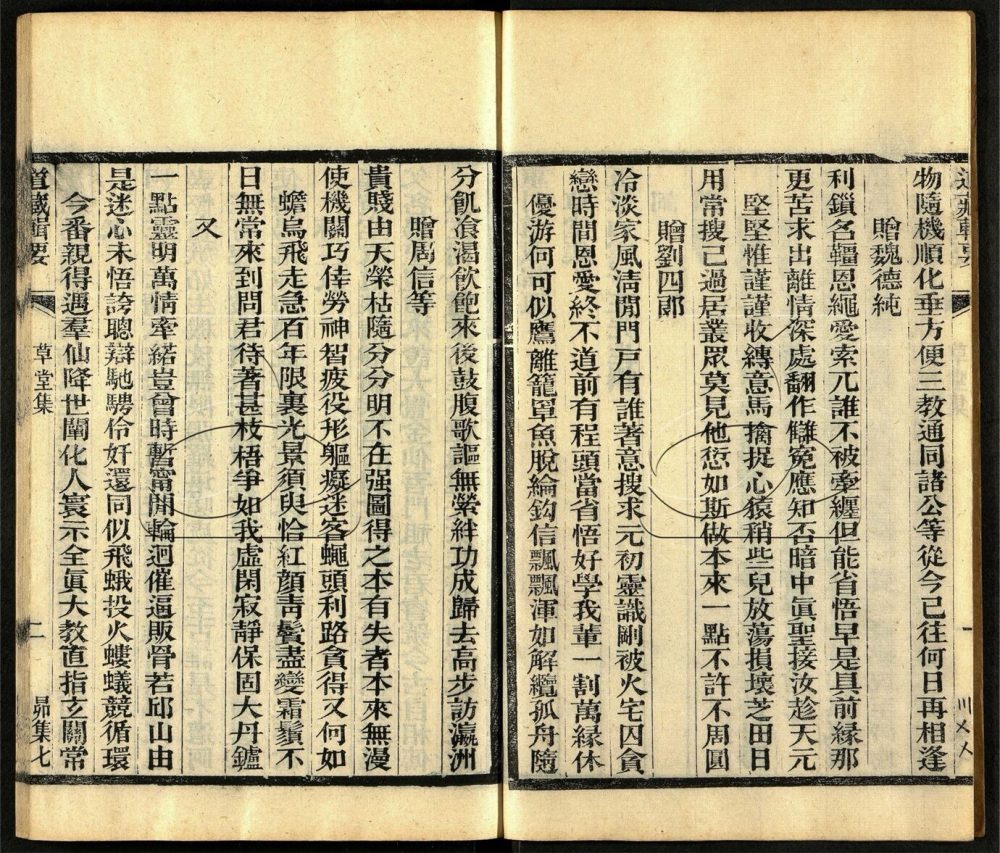 物隨機順化垂方便三教通同諸公等從今已往何日再相逢
贈魏德純
利鎖名韁恩繩愛索兀誰不被牽纏但能省悟早是具前緣那
更苦求出離情深處翻作讎冤應知否暗中眞聖接汝趁天元
堅堅惟謹謹收縳意馬擒捉心猿稍些兒放蕩損壞芝田日
用常搜己過居叢眾莫見他愆如斯做本來一點不許不周圓
贈劉四郎
冷淡家風清閒門戸有誰著意搜求元初靈識剛被火宅囚貪
戀時間恩愛終不道前有程頭當省悟好學我輩一割萬緣休
優游何可似鷹離籠罩魚脫綸鈎信飄飄渾如解纜孤舟隨
分飢飡渴飲飽來後鼓腹歌謳無縈絆功成歸去高步訪瀛洲
贈周信等
貴賤由天榮枯隨分分明不在强圖得之本有失者本來無漫
使機關巧倖勞神智疲役形軀癡迷客蠅頭利路貪得又何如
蟾烏飛走急百年限裏光景須臾恰紅顔靑鬢盡變霜鬚不
日無常來到問君待著甚枝梧爭如我虛閑寂靜保固大丹鑪
又
一點靈明萬情牽䋀豈曾時暫甯閒輪迴催逼販骨若邱山由
是迷心未悟誇聰辯馳騁伶奸還同似飛蛾投火螻蟻競循環
今番親得遇羣仙降世闡化人寰示全眞大教直指玄關常
道藏輯要
草堂集
二
昴集七